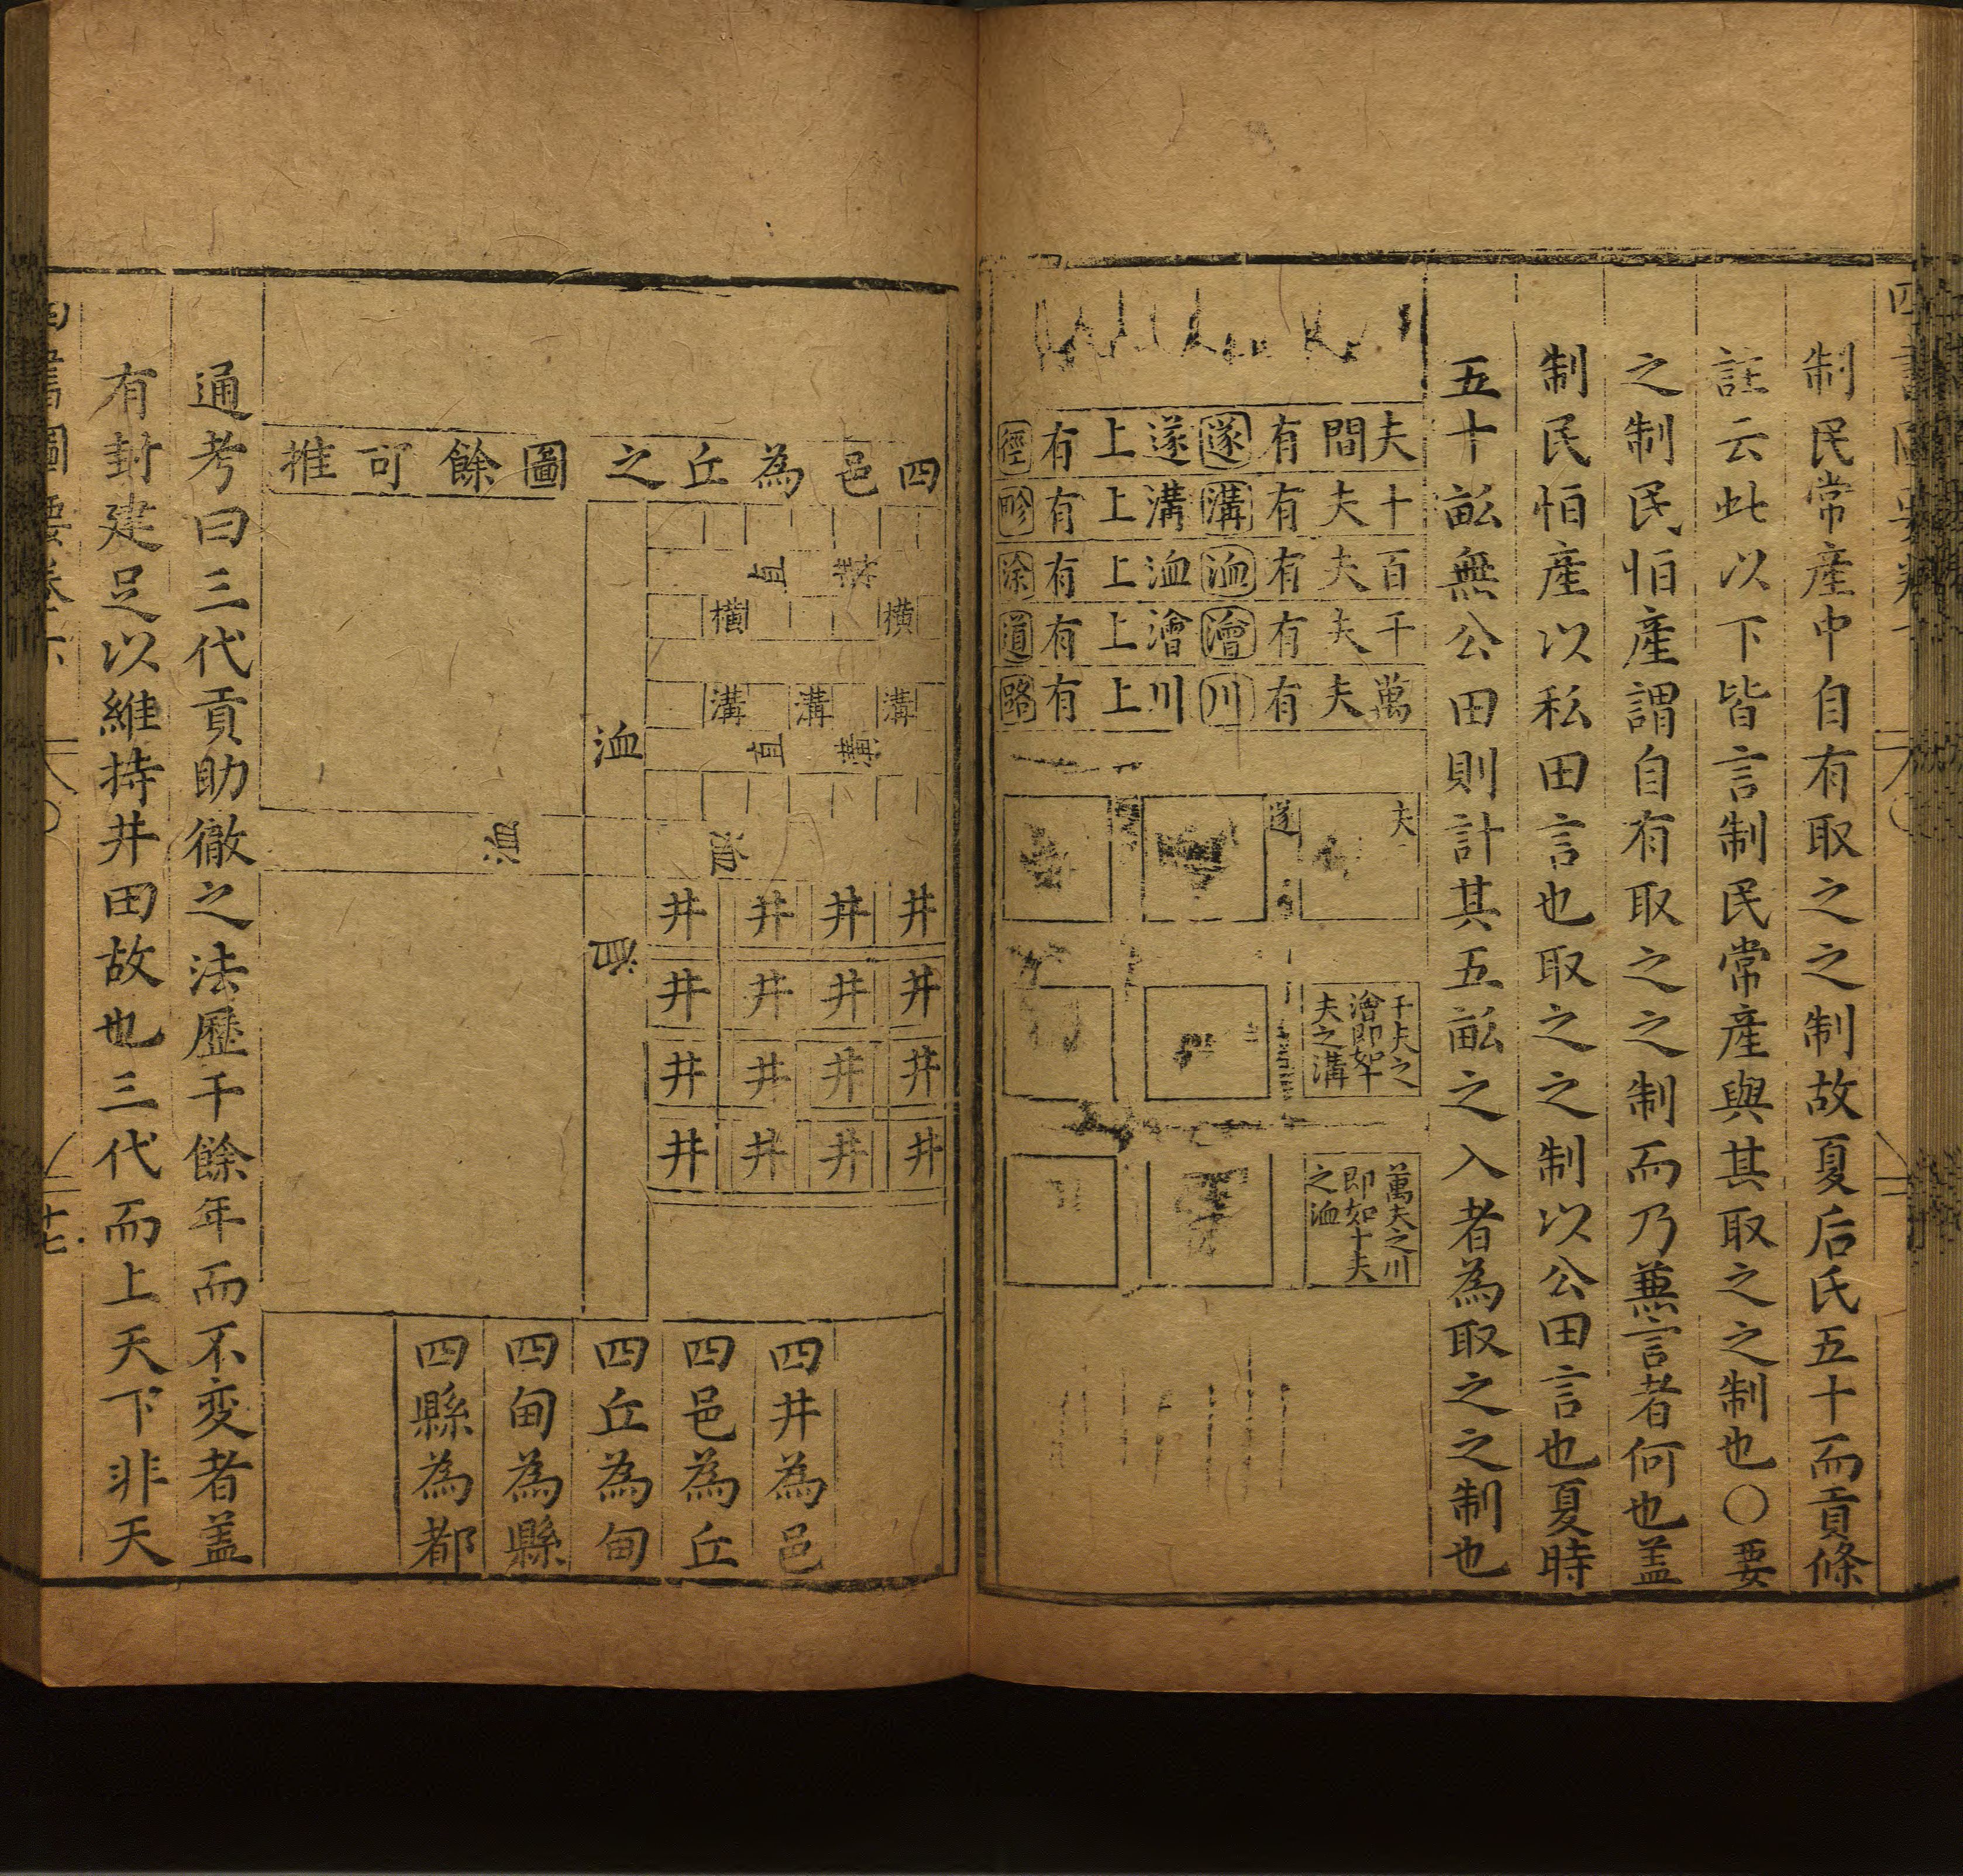 制民常產中自有取之之制故夏后氏五十而貢條
註云此以下皆言制民常產與其取之之制也〇要
之制民怕產謂自有取之之制而乃蕪言者何也盖
制民怕產以私田言也取之之制以公田言也夏時
五十畝無公田則計其五畝之入者為取之之制也
夫間有遂遂上有徑
十夫有溝溝上有畛
百夫有洫洫上有涂
千夫有澮澮上有道
萬夫有川川上有路
夫
遂
千夫之
澮即如十
夫之溝
萬夫之川
即如十夫
之洫
四邑為丘之圖餘可推
直
橫
橫
溝
溝
溝
直
洫
井井井井
井井井井
井井井井
井井井井
四井為邑
四邑為丘
四丘為甸
四甸為縣
四縣為都
通考曰三代貢助徹之法歷千餘年而不変者盖
有封建足以維持井田故也三代而上天下非天
十七